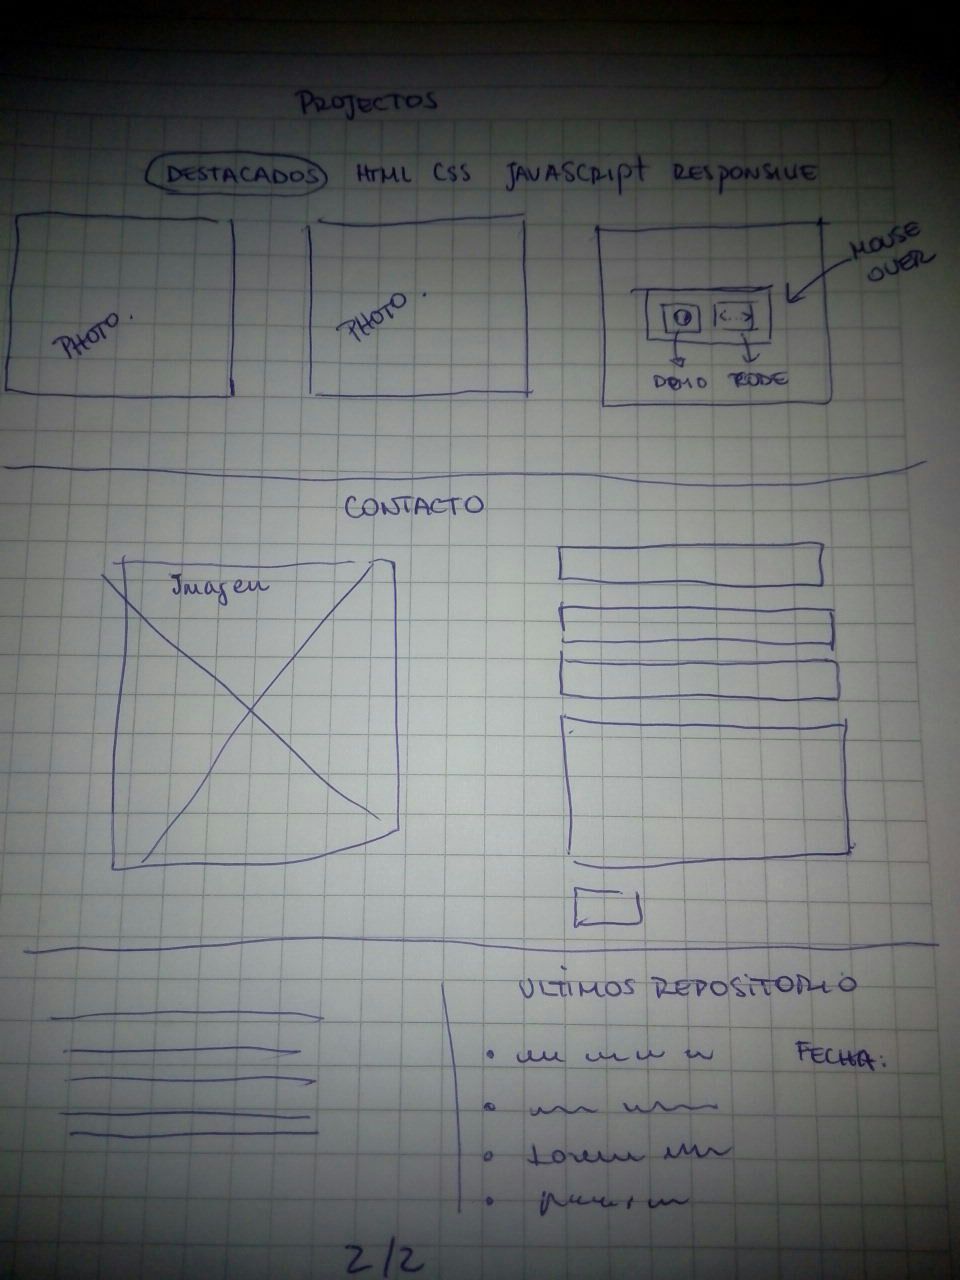 PROJECTOS
DESTACADOS HTML CSS JAVASCRIPT RESPONSIVE
MOUSE
OVER
PHOTO.
PHOTO.
<...>
DEMO CODE
CONTACTO
Imagen
ULTIMOS REPOSITORIO
FECHA:
Lorem
2/2